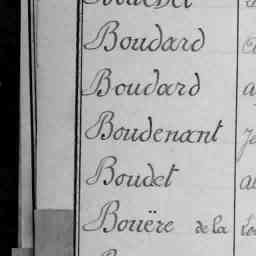 Boudard
Boudard
Boudenant
Boudet
Bouëre de la